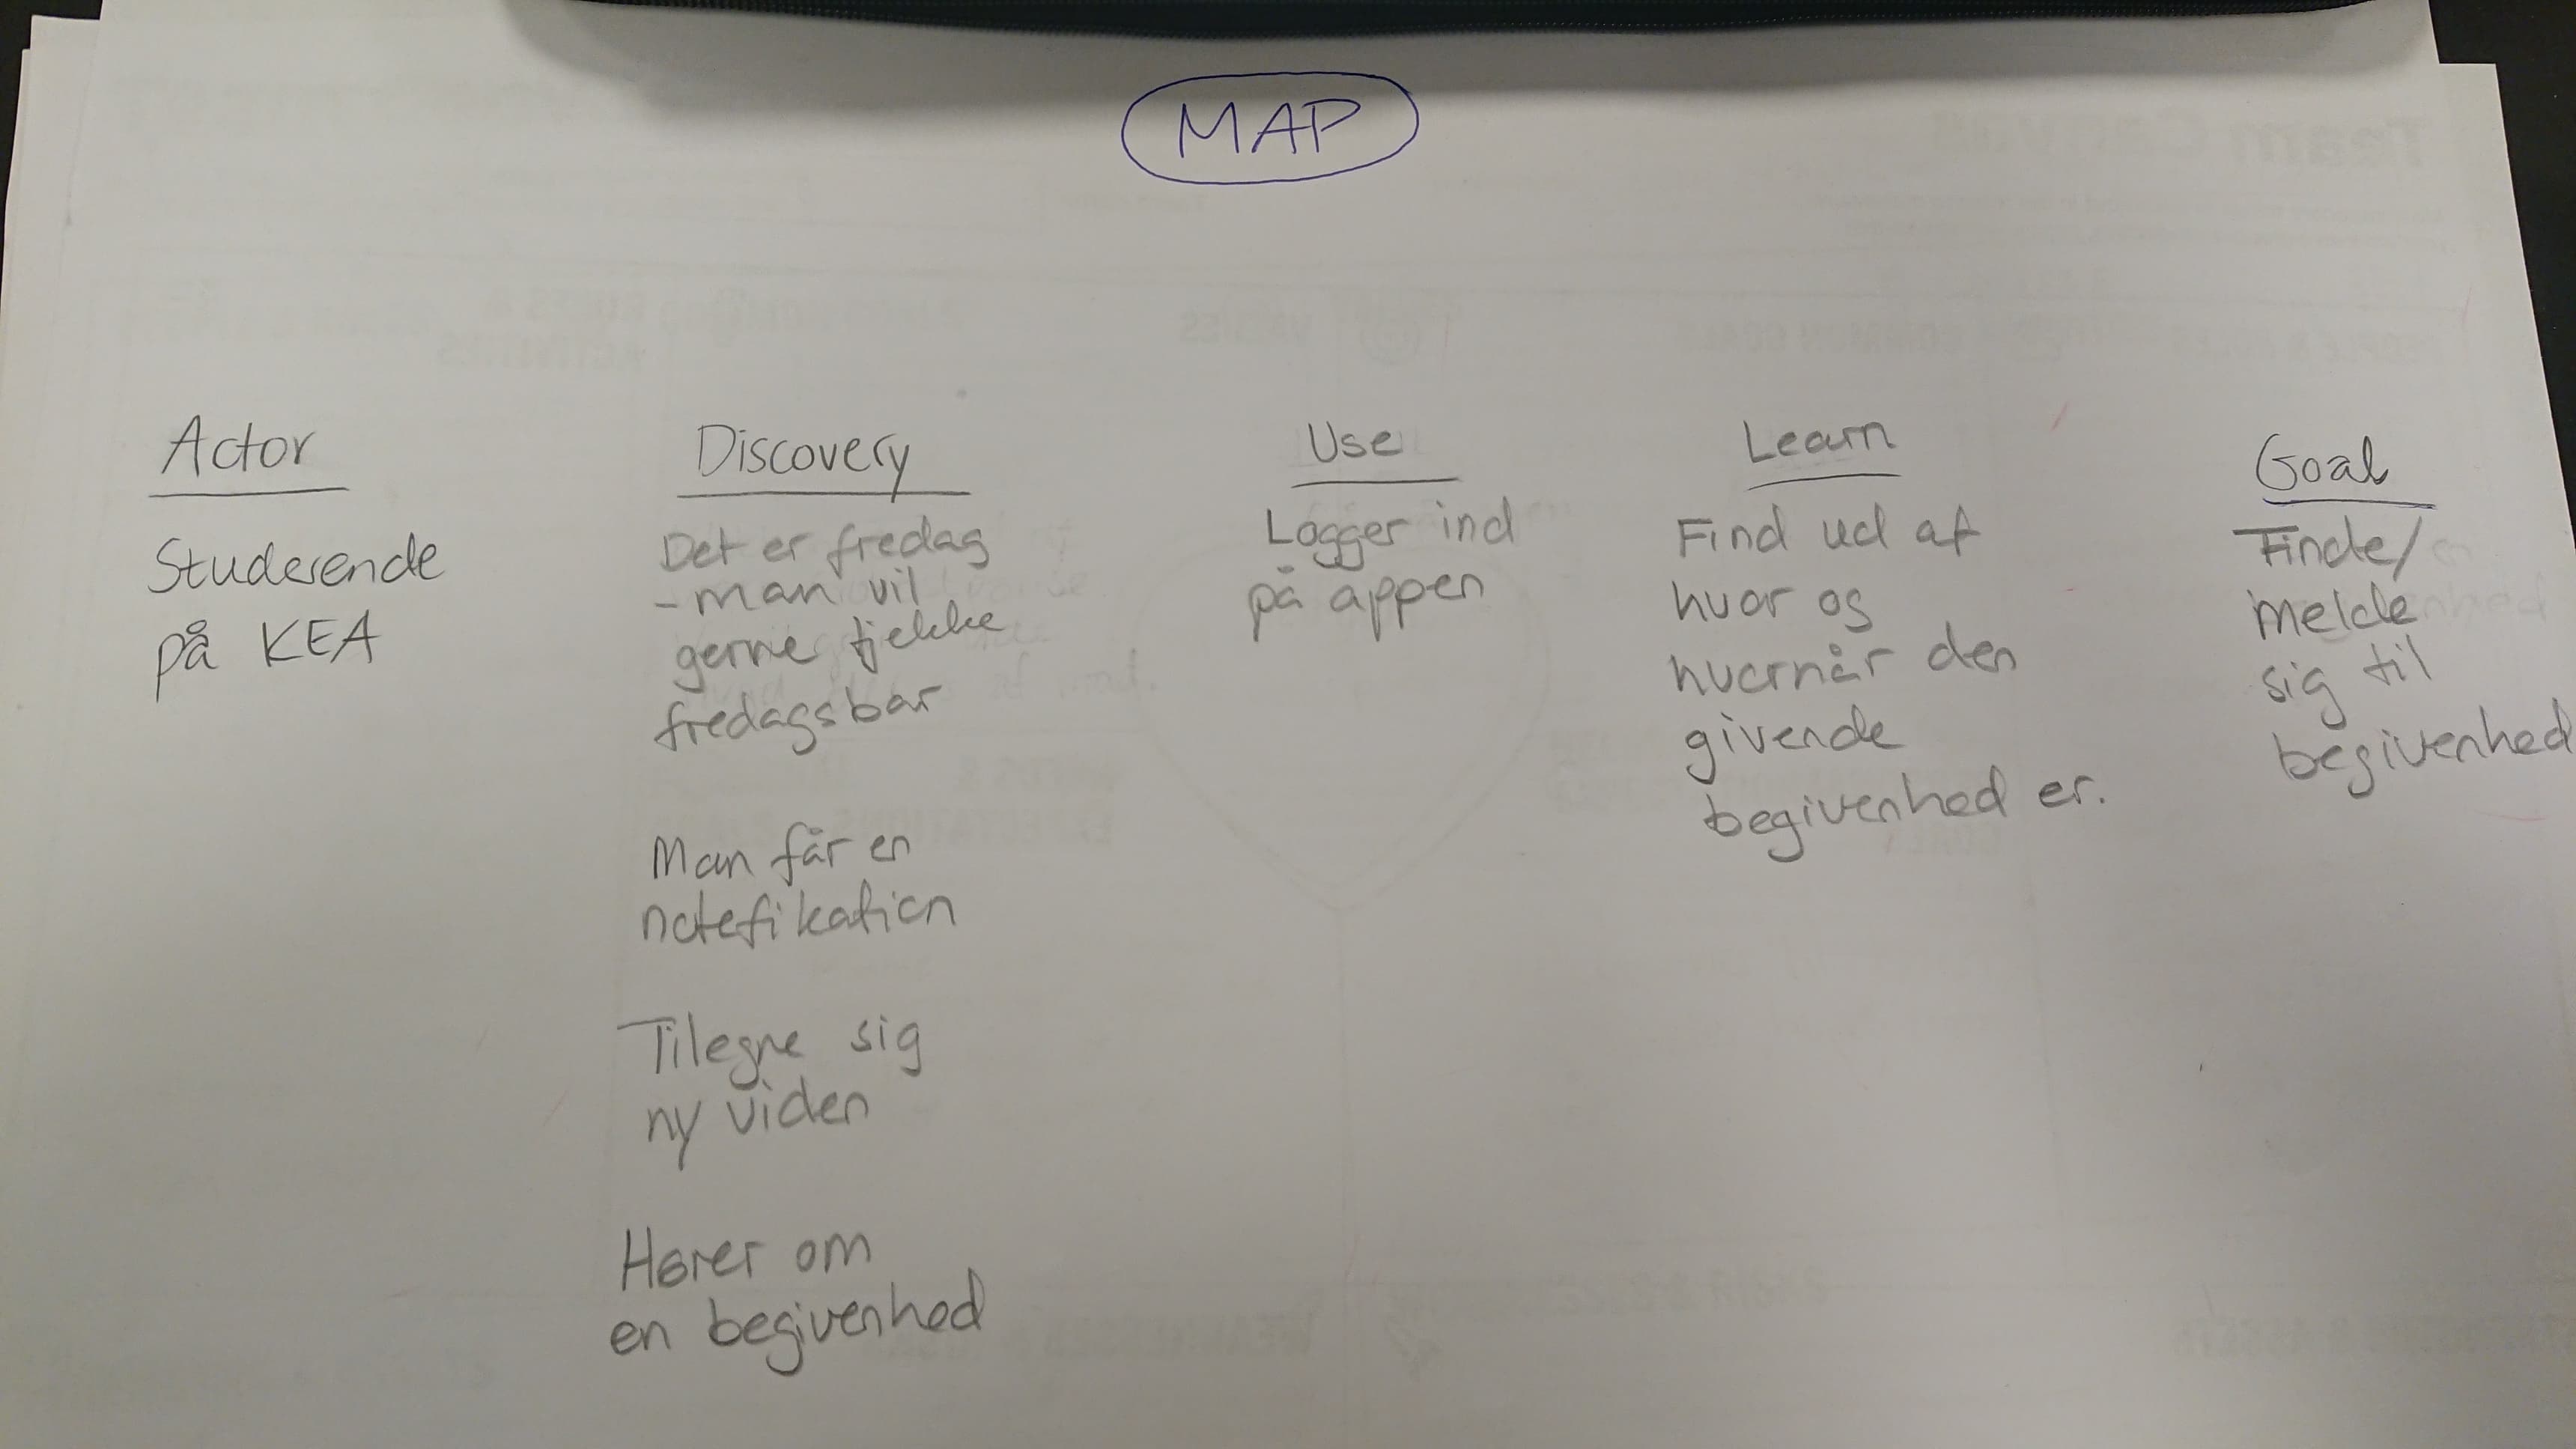 MAP
Actor
Studerende
på KEA
Discovery
Det er fredag
- man vil
gerne tjekke
fredagsbar
Man får en
notefikation
Tilegne sig
ny viden
Hører om
en begivenhed
Use
Logger ind
på appen
Learn
Find ud af
hvor og
hvornår den
givende
begivenhed er.
Goal
Finde/
melde
sig til
begivenhed